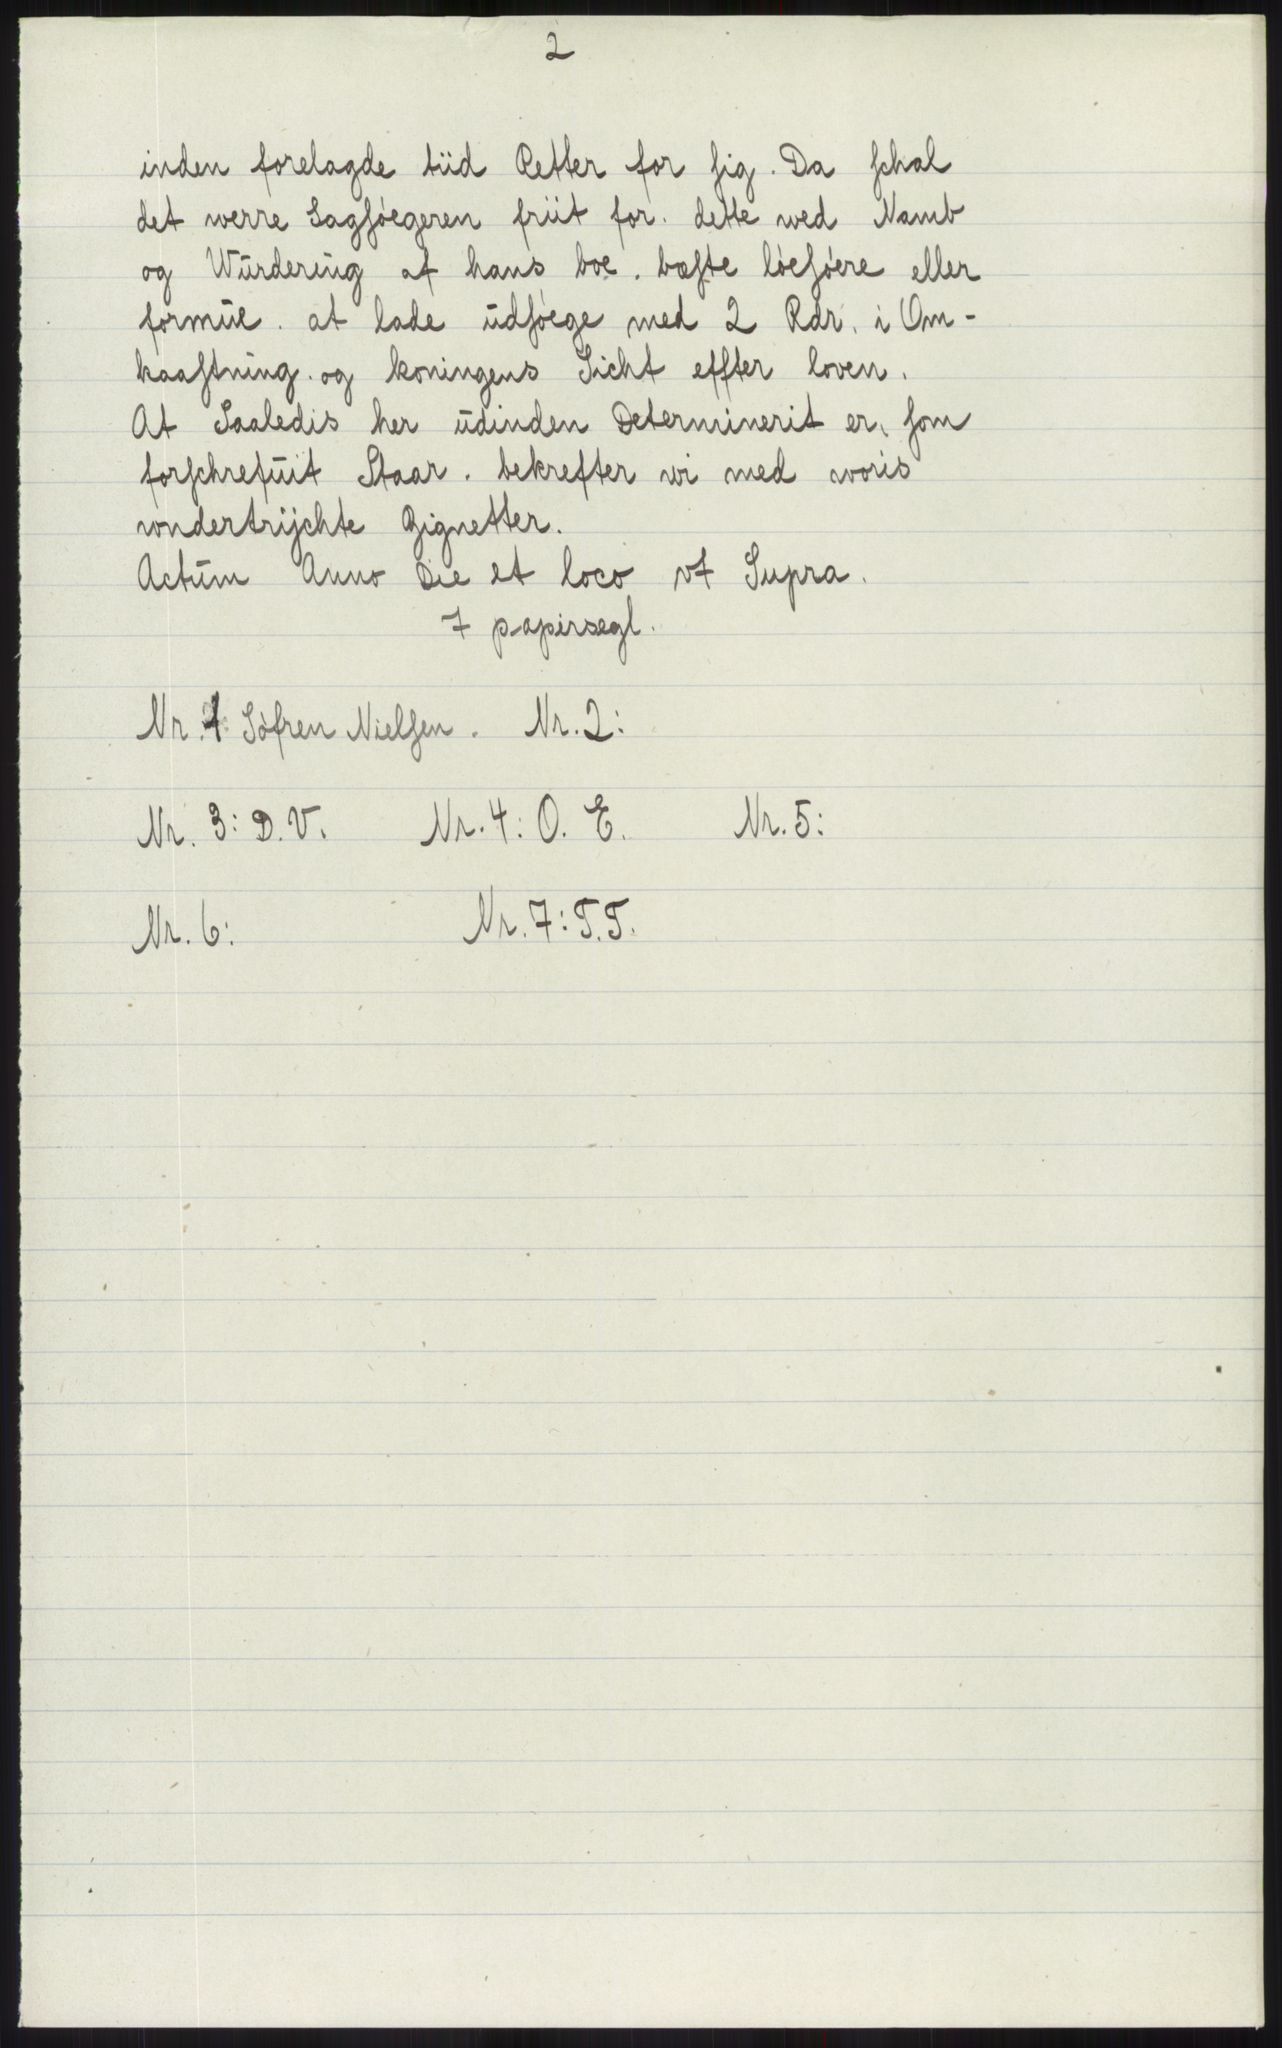 2
inden forelagde tiid Retter for sig. Da schal
det werre Sagsøegeren friit for. dette wed Namb
og Wūrderūig af hans boe. bæste løesøere eller
formūe. at lade ūdsøege med 2 Rdr. i Om-
kaastnūig. og koningens Sicht effter loven.
At Saaledis her ūdinden Determinerit er, som
forschrefūit Staar. bekrefter wi med woris
wndertrijchte Zignetter.
Actūm Anno Die et loco vt Supra.
7 papirsegl.
Nr. 1 Søfren Nielsen. Nr. 2:
Nr. 3: D. V. Nr. 4: O. E. Nr. 5:
Nr. 6: Nr. 7: T. T.